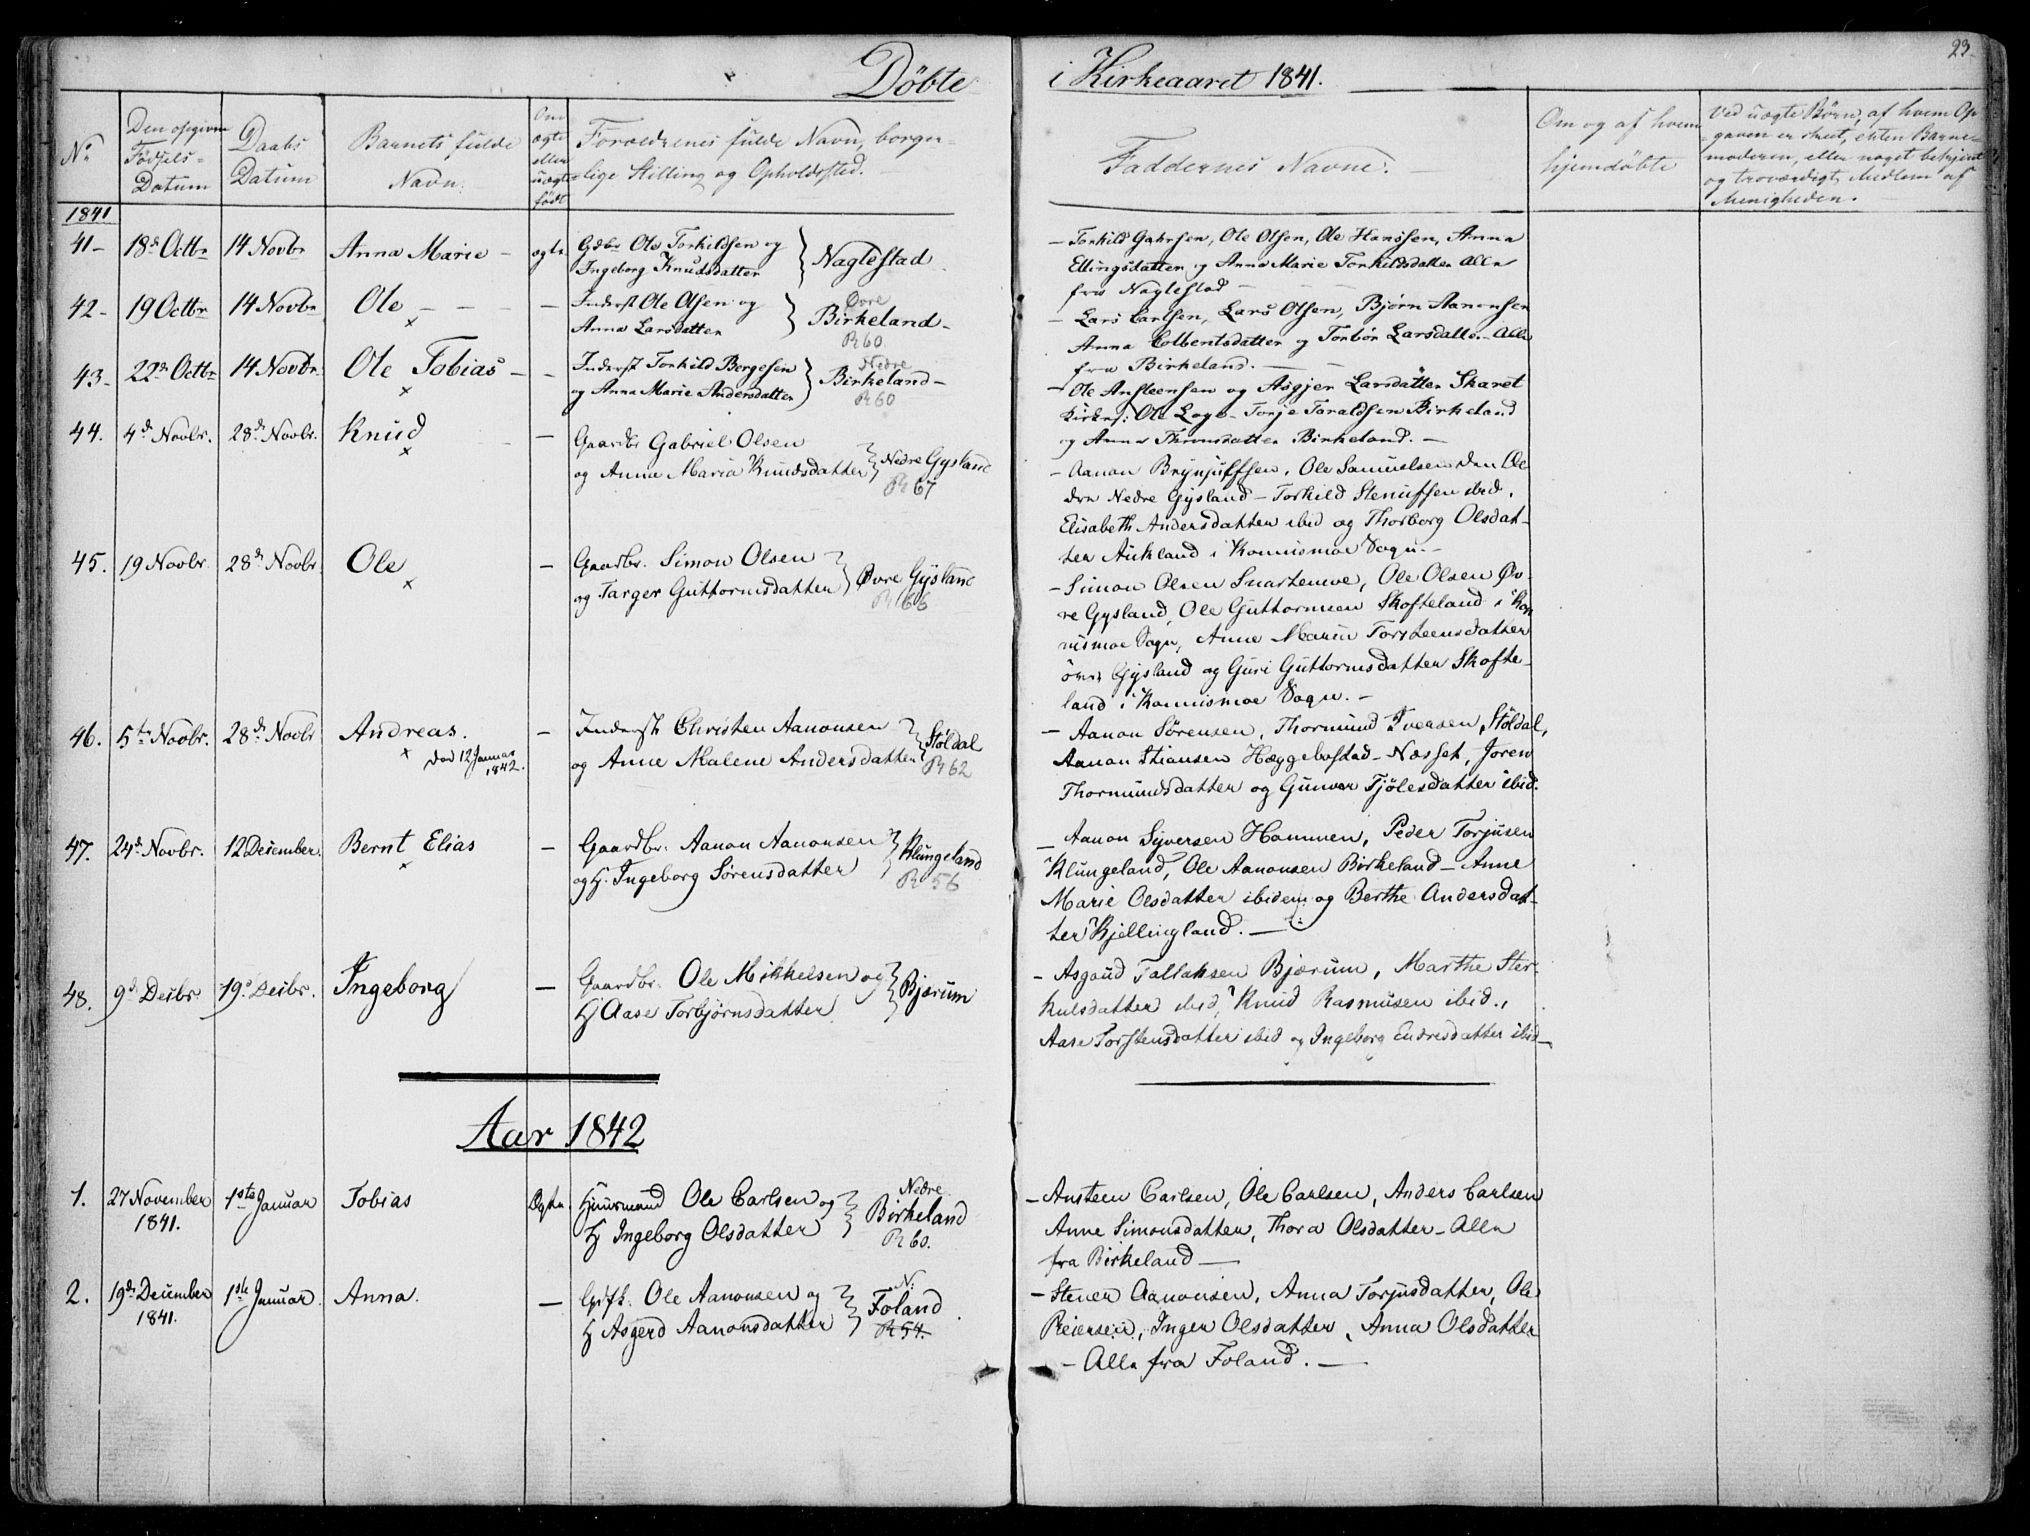 23.
Döbte i Kirkeaaret 1841.
No
Den opgivne Födsels- Datum
Daabs Datum
Barnets fulde Navn.
Om ægte eller uægte født
Forældrenes fulde Navn, borger- lige Stilling og Opholdssted.
Faddernes Navne.
Om og af hvem hjemdöbte
Ved uægte Børn, af hvem Op- gaven er skeet, enten Barne- moderen, eller noget bekjent og troværdigt Medlem af Menigheden.
1841
41- 18d Octbr 14 Novbr Anna Marie - ægte
Gdbr Ole Torkildsen og
Ingeborg Knudsdatter } Naglestad
- Torkild Olsen, Ole Hanssen, Anna
Ellingsdatter og Anna Marie Torkildsdatter Alle
fra Naglestad -
42- 19 Octbr 14 Novbr Ole - - - -
Inderst Ole Olsen og
Anna Larsdatter } Øvre Birkeland-
R 60.
- Lars Carlsen, Lars Olsen, Bjørn Aanensen
Anna Colbentsdatter og Tonbør Larsdatter. Alle
fra Birkeland. -
43- 22de Octbr 14 Novbr. Ole Tobias - -
Inderst Torkild Bergesen
og Anna Marie Andersdatter } Nedre Birkeland-
R 60
- Ole Ansteensen og Asgjer Larsdatter Skaret
Ole Loge - Tonje Taraldsen Birkeland
og Anna Birkeland. -
44. 4de Novbr. 28de Novbr. Knud -
Gaardbr Gabriel Olsen
og Anne Maria Knudsdatter } Nedre Gysland
R 67
- Aanon Brynjulfsen, Ole Samuelsen den
Nedre Gysland - Torkild ibid.
Elisabeth Andersdatter ibid og Thorborg Olsdat-
ter Aukland i Konnismoe Sogn. -
45. 19 Novbr. 28de Novbr. Ole -
Gaardbr. Simon Olsen
og Targer Guttormsdatter } Øvre Gysland
R 66
- Simon Olsen Snartemoe, Ole Olsen Øv-
re Gysland, Ole Guttormsen Skofteland i Kon-
nismoe Sogn, Anne Maria Torsteensdatter
övre Gysland og Guri Guttormsdatter Skofte-
land i Konnismoe Sogn. -
46. 5te Novbr. 28de Novbr Andreas. -
död 12 Januar 1842.
Inderst Christen Aanonsen
og Anne Malene Andersdatter } Stöldal
R 62
- Aanon Sørensen, Thormund Iversen Stöldal,
Aanon Stiansen Hæggebostad - Næsset, Joren
Thormundsdatter og Gunvor Fjölesdatter ibid.
47. 24de Novbr. 12 December. Bernt Elias -
Gaardbr. Aanon Aanonsen
og H. Ingeborg Sørensdatter } Klungeland
R 56
- Aanon Syversen Hommen, Peder Torjusen
Klungeland, Ole Aanonsen Birkeland - Anne
Marie Olsdatter ibidem og Berthe Andersdat-
ter Kjellingland. -
48. 9de Decbr. 19de Decbr. Ingeborg -
Gaardbr. Ole Mikkelsen og
H Aase Torbjørnsdatter } Bjærum
- Asgaud Tallaksen Bjærum, Marthe Ster-
kulsdatter ibid, Knud Rasmusen ibid.,
Aase Torstensdatter ibid og Ingeborg Endresdatter ibid -
Aar 1842
1. 27 November 1841. 1ste Januar Tobias Ægte.
Huusmand Ole Carlsen og
H Ingeborg Olsdatter } Nedre Birkeland
R 60.
- Ansteen Carlsen, Ole Carlsen, Anders Carlsen
Anne Simonsdatter, Thora Olsdatter - Alle
fra Birkeland -
2. 19de December 1841. 1ste Januar Anna. -
Gdfk. Ole Aanonsen og
H Asgerd Aanonsdatter } N: Foland
R 54.
- Stener Aanonsen, Anna Torjusdatter, Ole
Reiersen, Inger Olsdatter, Anna Olsdatter
- Alle fra Foland. -